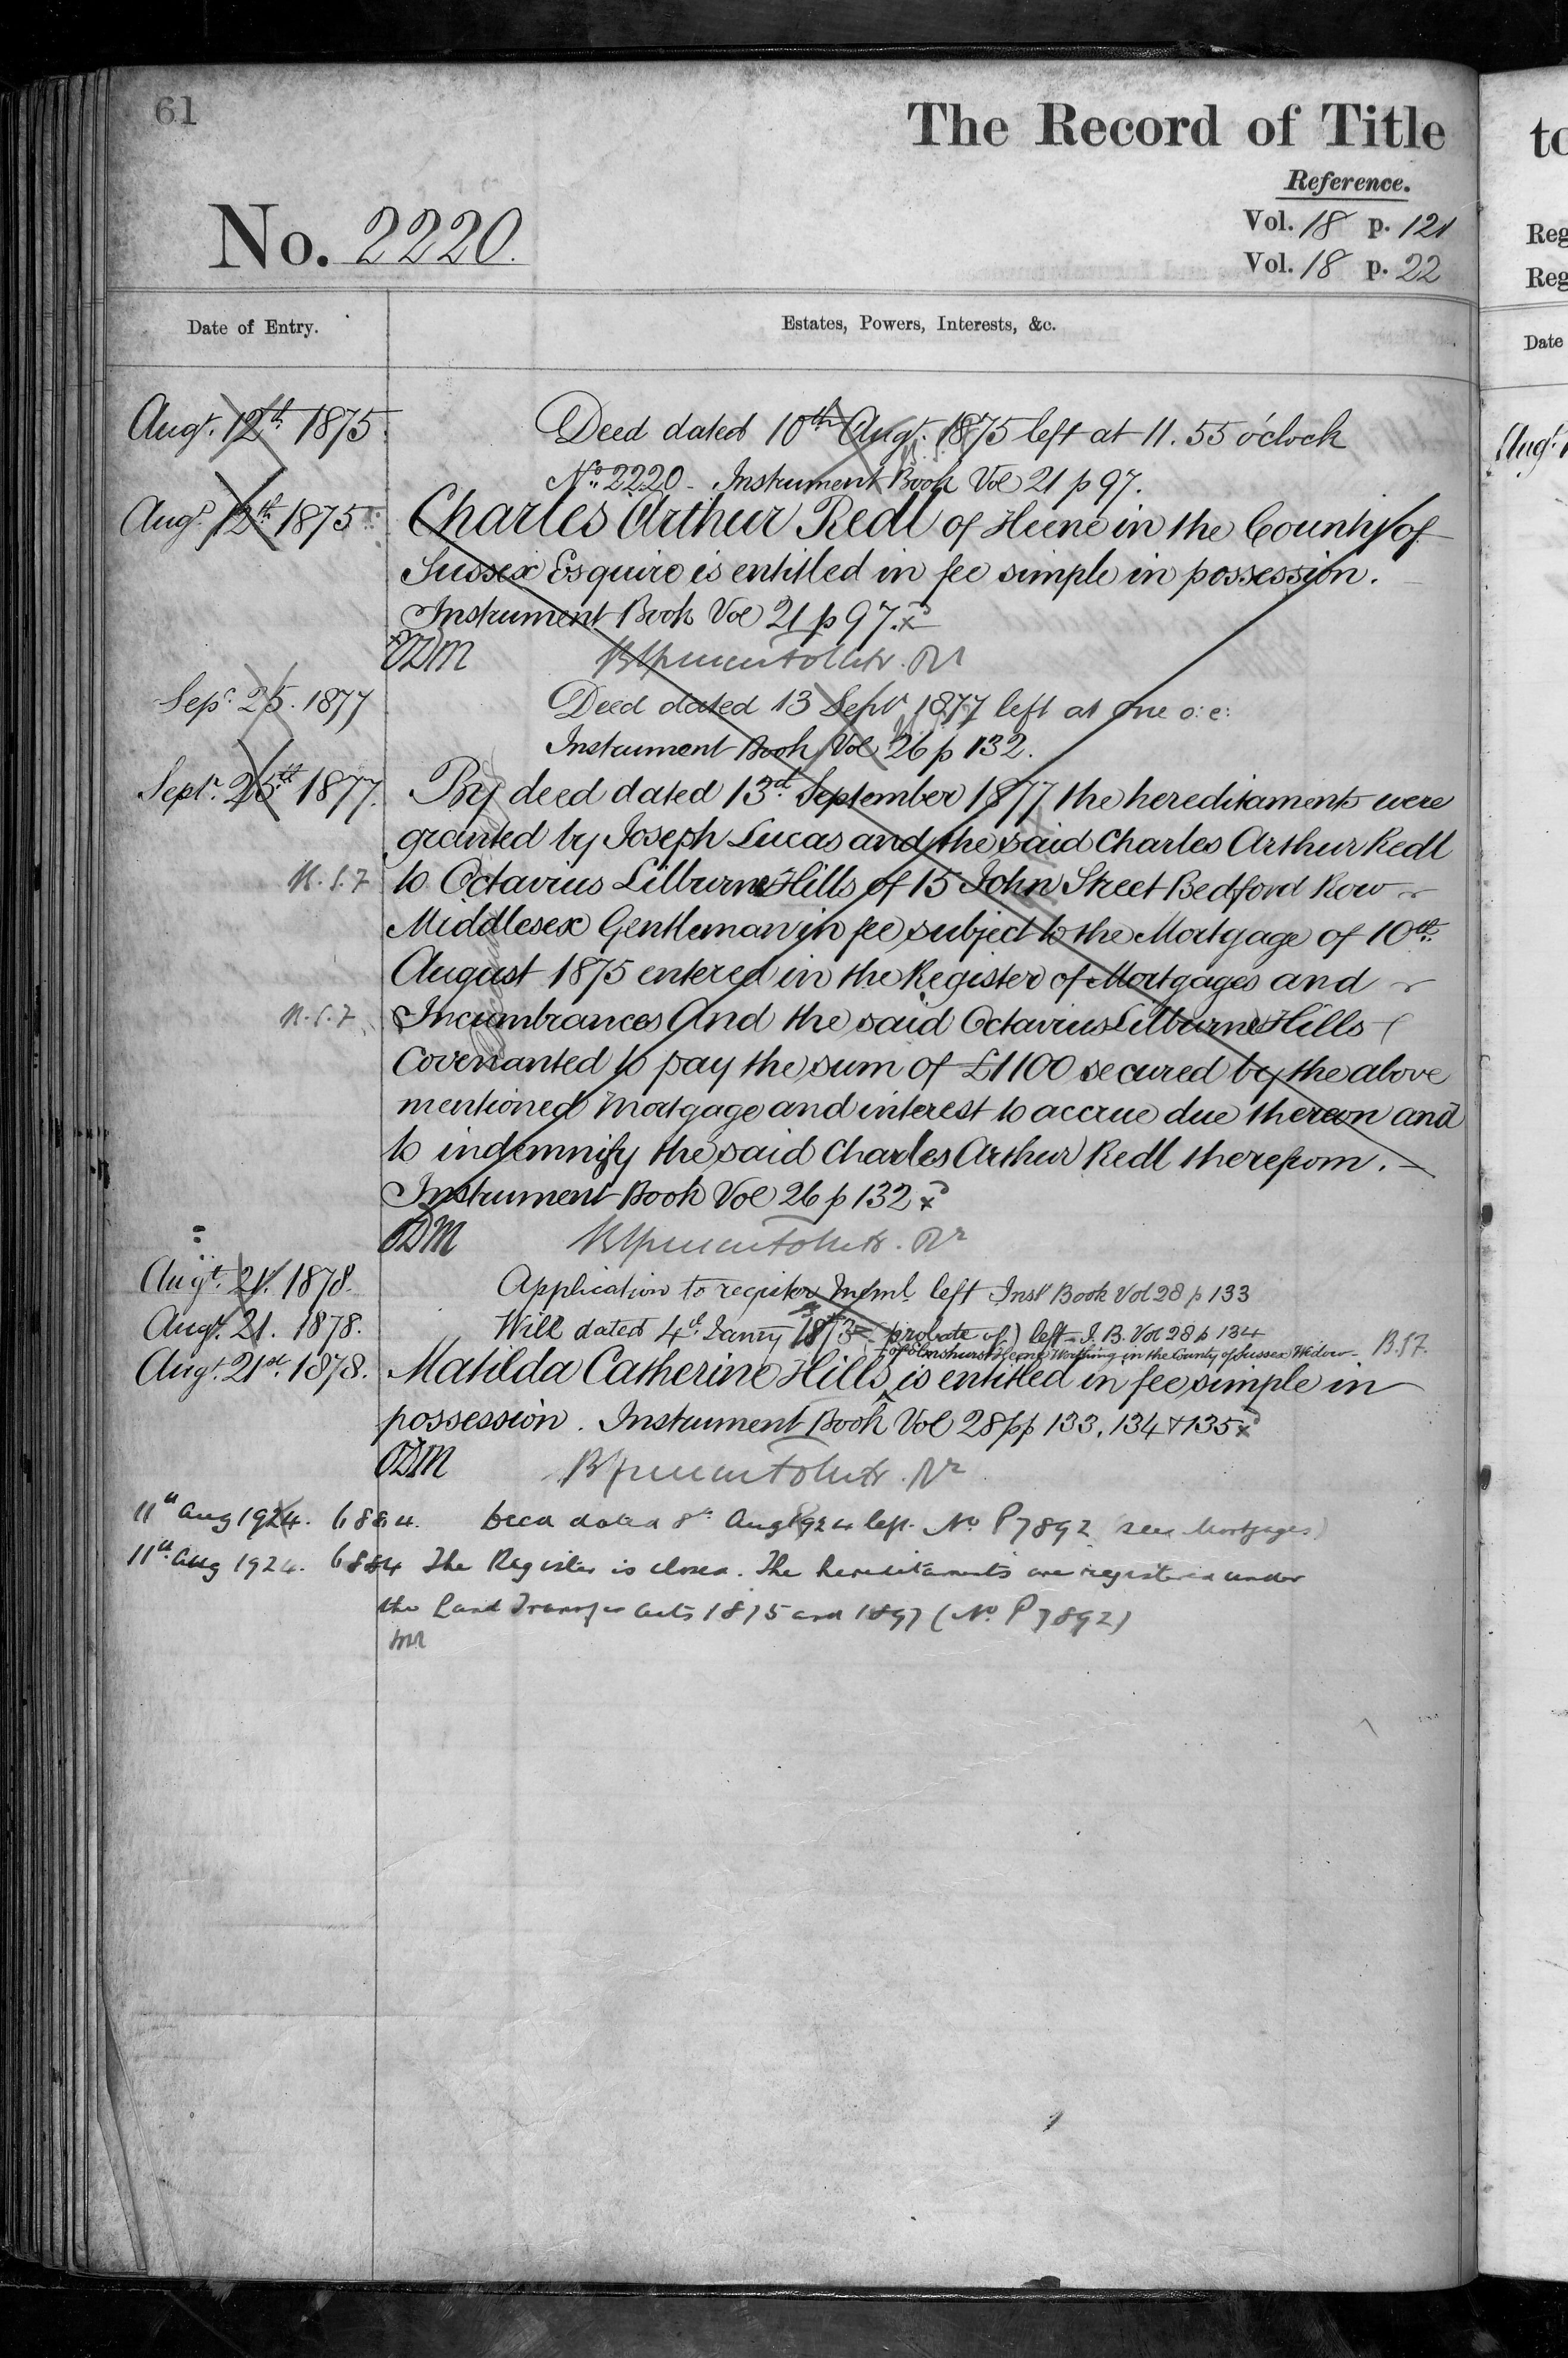 61
The Record of Title
Reference.
No. 2220.
Vol. 18 p. 121
Vol. 18 p. 22
Date of Entry.
Estates, Powers, Interests, &c.
Augt. 12th 1875. Deed dated 10th Augt. 1875 left at 11.55 o'clock
No. 2220 - Instrument Book Vol 21 p 97.
Augt. 12th 1875 Charles Arthur Redl of Heene in the County of
Sussex Esquire is entitled in fee simple in possession.
Instrument Book Vol 21 p 97. x
ODM
Sepr. 25. 1877 Deed dated 13 Septr 1877 left at one o:c:
Instrument Book Vol 26 p 132.
Septr. 25th 1877. By deed dated 13d. September 1877 the hereditaments were
granted by Joseph Lucas and the said Charles Arthur Redl
to Octavius Lilburne Hills of 15 John Street Bedford Row
Middlesex Gentleman in fee subject to the Mortgage of 10th.
August 1875 entered in the Register of Mortgages and
Incumbrances And the said Octavius Lilburne Hills
Covenanted to pay the sum of £1100 secured by the above
mentioned Mortgage and interest to accrue due thereon and
to indemnify the said Charles Arthur Redl therefrom.
Instrument Book Vol 26 p 132 x
ODM
Augt. 21. 1878. Application to register left Inst Book Vol 28 p 133
Augt. 21. 1878. Will dated 4th. Janry probate of) left - I. B. Vol 28 p 134
Heene Worthing in the County of Sussex Widow - B.S.7.
Augt. 21st. 1878. Matilda Catherine Hills is entitled in fee simple in
possession. Instrument Book Vol 28 pp 133, 134 & 135 x
ODM
11th Aug 1924. 6884. Deed dated 8th Aug 1924 left. No. P7892 (see Mortgages)
11th Aug 1924. 6884 The Register is closed. The hereditaments are registered under
the Land Transfer Acts 1875 and 1897 (No. P7892)
to
Reg
Reg
Date
Augt.